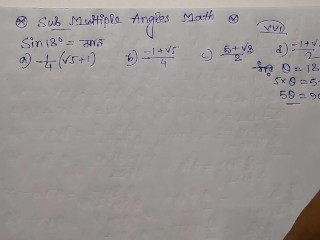 Sub Multiple Angles Math
VVI
Sin18° = मान
a) 1/4 (√5+1) b) -1+√5/4 c) d) -1+√5
θ = 18
5×θ = 5
5θ = 90